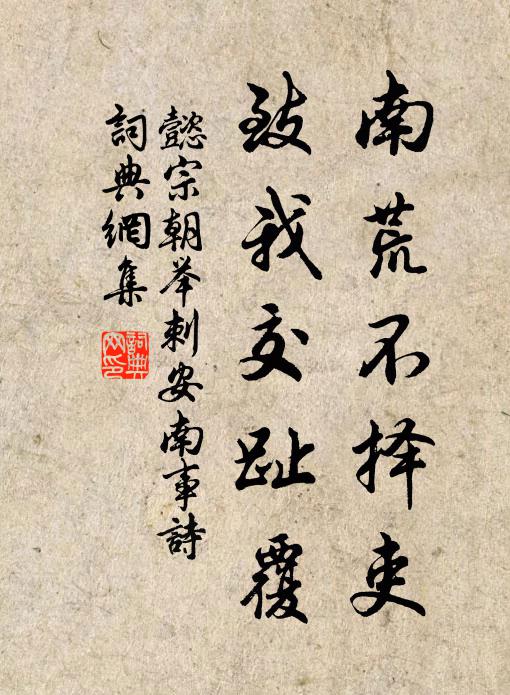 南荒不择吏
致我交趾覆
懿宗朝举刺安南事詩
詞典網集
詞典网印